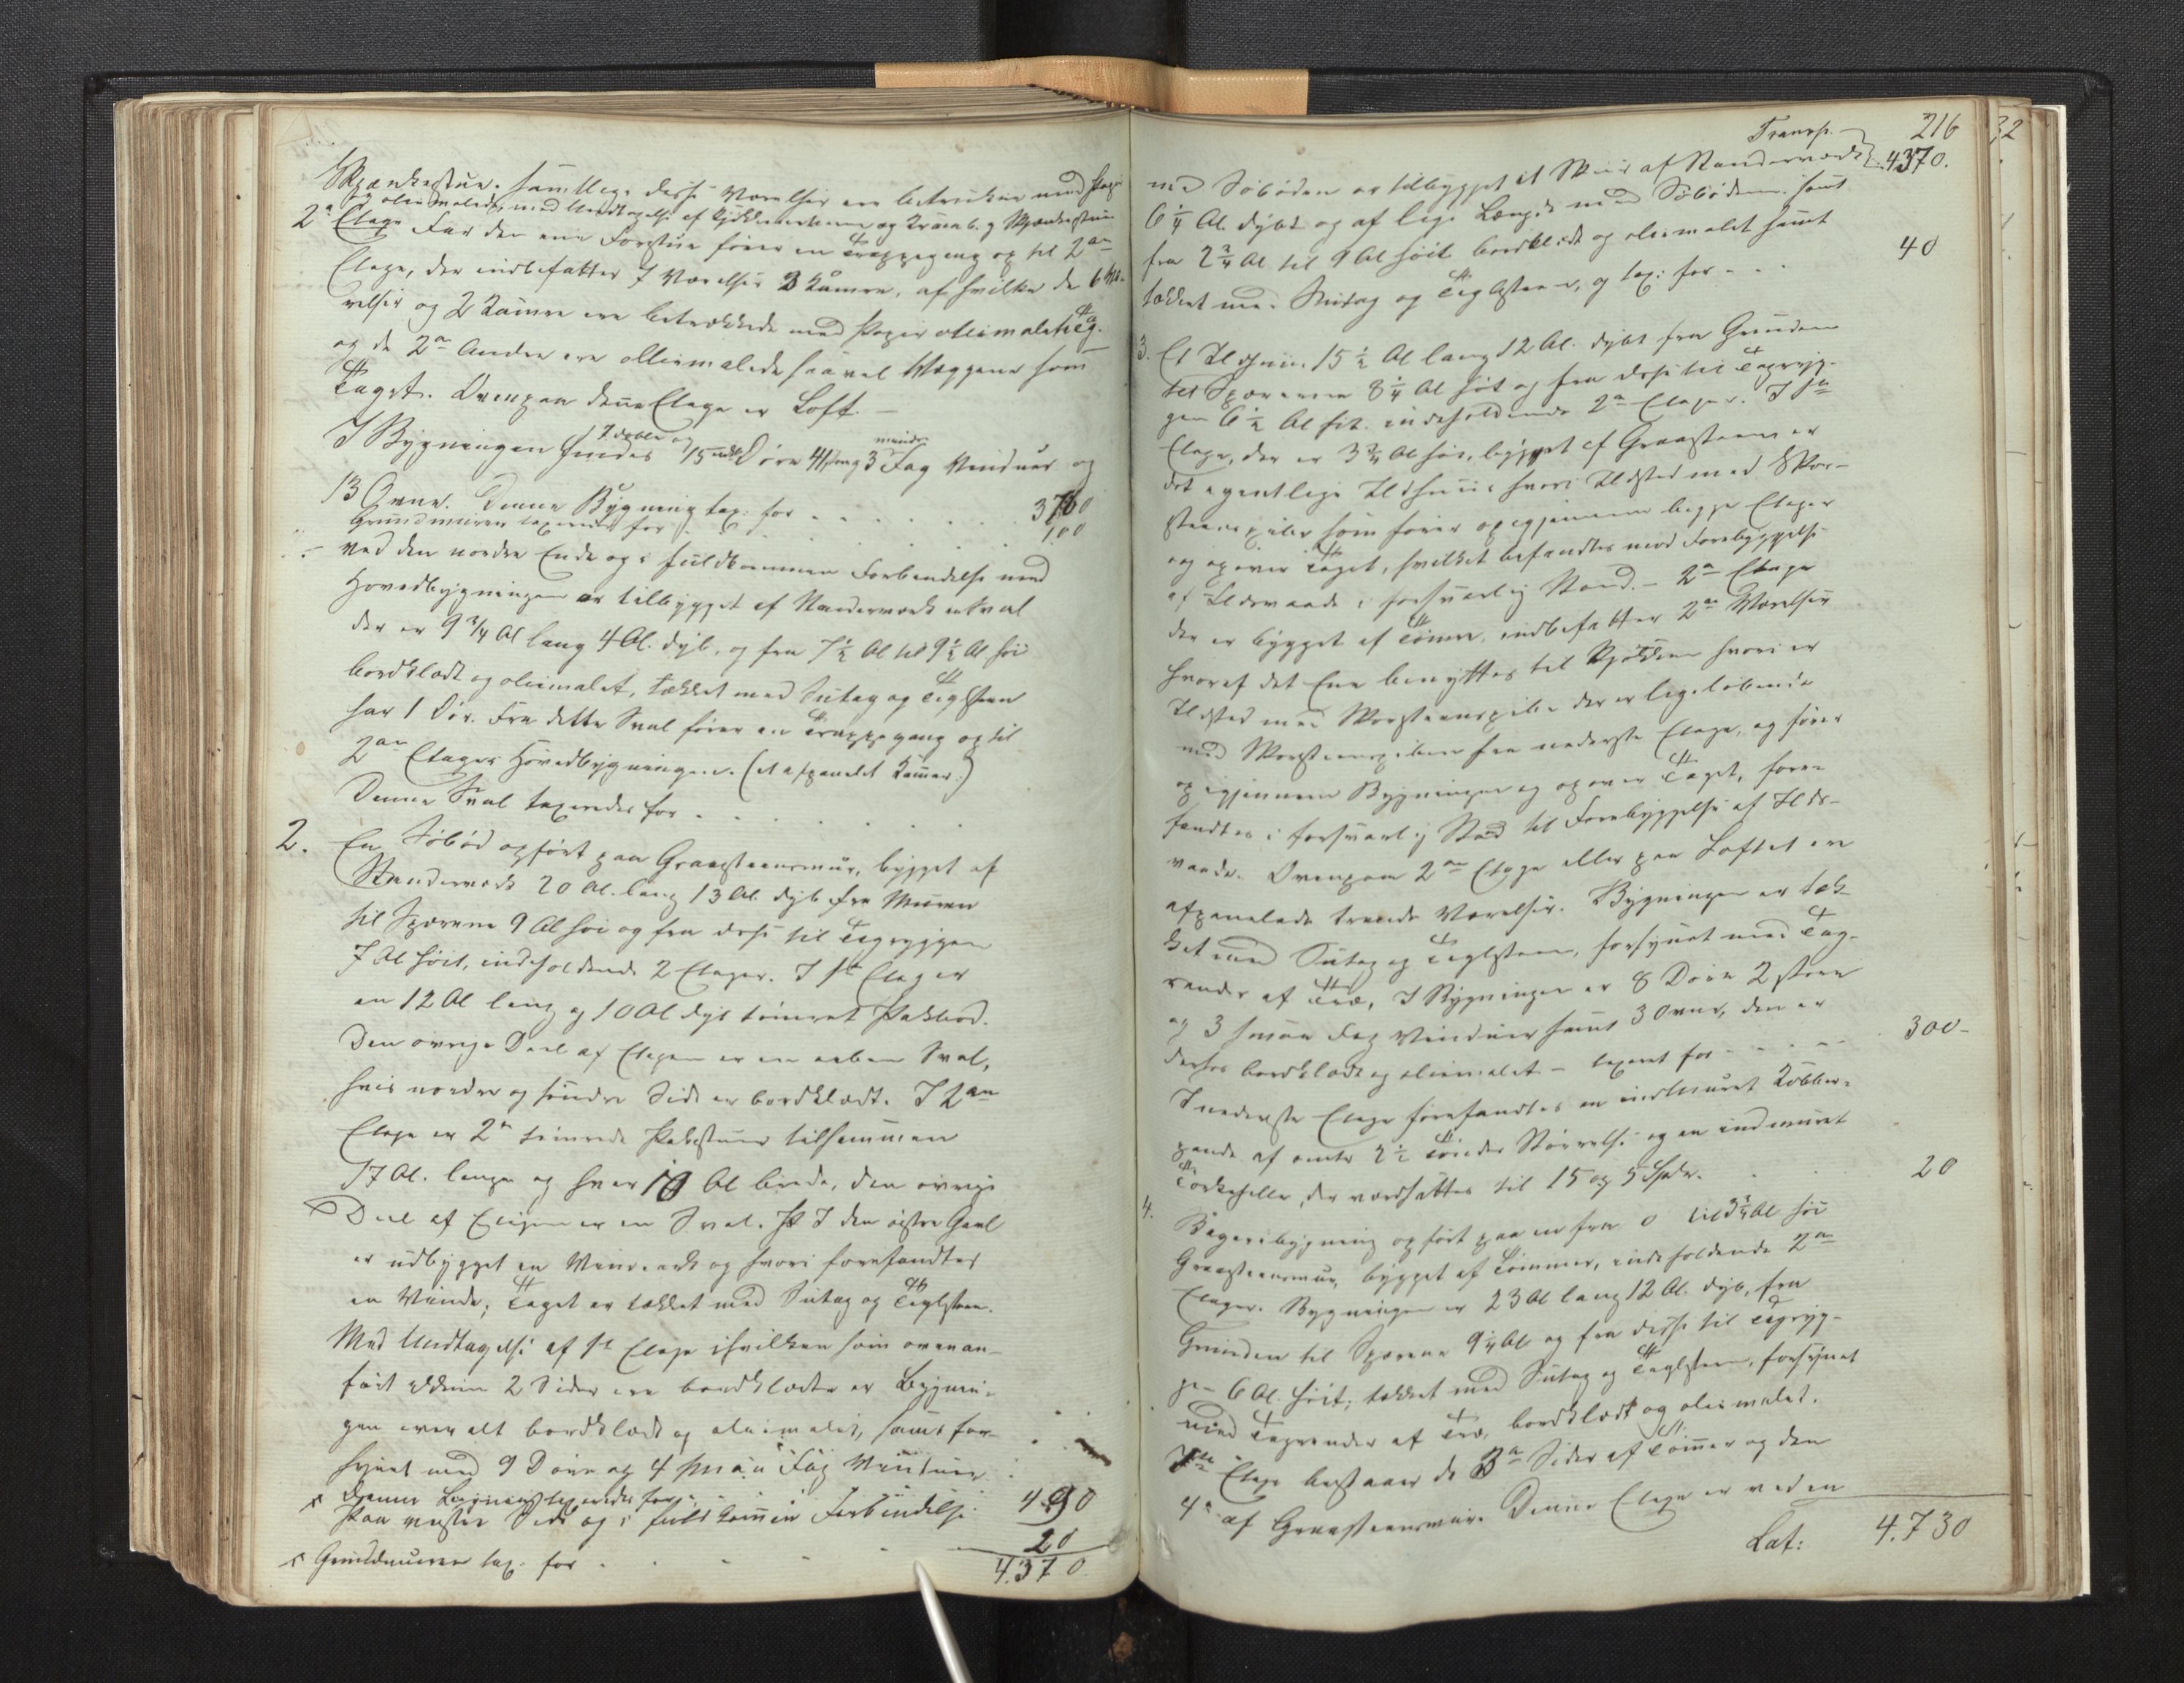 Skjænkestue. Samtlige disse Værelser ere betrukne med Papir
og oliemalede, med Undtagelse af Kjøkkenerne og Kramb. & Skjænkestuen
2den Etage Fra den ene Forstue fører en Trappegang op til 2den
Etage, der indbefatter 7 Værelser 3 Kamre, af hvilke de 6 Væ-
relser og 2 Kamre ere betrækkede med Papir oliemalet Tag
og de 2de Andre ere olliemalede saavel Væggene som
Taget. Ovenpaa denne Etage er Loft. —
I Bygningen findes 7 doble og 15 enkelt Døre 41 store og 3 mindre Fag Vinduer og
13 Ovne. Denne Bygning tax: for 3760
Grundmuren taxeredes for 100
Ved den nordre Ende og i fuldkommen Forbindelse med
Hovedbygningen er tilbygget af Standerværk en Sval
der er 9 3/4 Al lang 4 Al. dyb, og fra 7 1/2 Al til 9 1/2 Al høi
bordklædt og oliemalet, tækket med Sutag og Teglsteen
har 1 Dør. Fra dette Sval fører en Trappegang op til
2den Etages Hovedbygningen. (et afpanelet Kammer)
Denne Sval taxeredes for
2. En Søbod opført paa Graasteensmuur, bygget af
Standerværk 20 Al. lang 13 Al. dyb fra Muren
til Sperrene 9 Al høi og fra disse til Tagryggen
7 Al høit, indeholdende 2 Etager. I 1ste Etage er
en 12 Al lang og 10 Al dyb tømret Pakbod.
Den øvrige Deel af Etagen er en aaben Sval,
hvis nordre og søndre Side er bordklædt. I 2den
Etage er 2de tømrede Pakstuer tilsammen
17 Al. lange og hver 10 Al brede, den øvrige
Deel af Etagen er en Sval. I den østre Gavl
er udbygget en Vindeark og hvori forefandtes
en Vinde, Taget er tækket med Sutag og Teglsteen.
Med Undtagelse af 1ste Etage i hvilken som ovenan-
ført 2 Sider ere bordklædte er Bygnin-
gen over alt bordklædt og oliemalet, samt for-
synet med 9 Døre og 4 smaa Fag Vinduer
Denne Bygning taxeredes for 490
Paa vestre Side og i fuldkommen Forbindelse
Grundmuren tax: for 20
4.370
216
Transp. 4370.
med Søboden er tilbygget et Skuur af Standerværk
6 1/4 Al. dybt og af lige Længde med Søboden. samt
fra 2 3/4 Al til 9 Al høit bordklædt og oliemalet samt
tækket med Sutag og Teglsteen, og tax: for 40
3. Et Ildhuus 15 1/2 Al lang 12 Al. dybt fra Grunden
til Sperrerne 8 1/4 Al høi og fra disse til Tagryg-
gen 6 1/2 Al høi. indeholdende 2de Etager. I 1ste
Etage, der er 3 3/4 Al høi, bygget af Graasteen er
det egentlige Ildhuus hvori Ildsted med Skor-
steenspibe som fører op igjennem begge Etager
og op over Taget, hvilket befandtes mod Forebyggelse
af Ildsvaade i forsvarlig Stand. – 2den Etage
der er bygget af Tømmer, indbefatter 2de Værelser
hvoraf det Ene benyttes til Kjøkken hvori er
Ildsted med Skorsteenspibe der er ligeløbende
med Skorsteenspiben fra nederste Etage, og fører
op igjennem Bygningen og op over Taget, fore-
fandtes i forsvarlig Stand til Forebyggelse af Ilds-
vaade. Ovenpaa 2den Etage eller paa Loftet ere
afpanelede trende Værelser. Bygningen er tæk-
ket med Sutag og Teglsteen, forsynet med Tag-
render af Træ, I Bygningen er 8 Døre 2 store
og 3 smaa Fag Vinduer samt 3 Ovne, den er
derhos bordklædt og oliemalet – taxeret for 300-
I nederste Etage forefandtes en indmuret Kobber-
pande af omtr 2 1/2 Tønders Størrelse og en indmuret
Tørkehelle, der værdsattes til 15 og 5 Spdr. 20
4. Bageribygning opført paa en fra 0 til 3 3/4 Al høi
Graasteensmuur, bygget af Tømmer, indeholdende 2de
Etager. Bygningen er 23 Al lang 12 Al. dyb, fra
Grunden til Sperrene 9 1/4 Al og fra disse til Tagryg-
gen 6 Al. høit, tækket med Sutag og Teglsteen, forsynet
med Tagrender af Træ, bordklædt og oliemalet.
I 1ste Etage bestaaer de 3de Sider af Tømmer og den
4de af Graasteensmuur. Denne Etage er ved en
Lat: 4.730
32